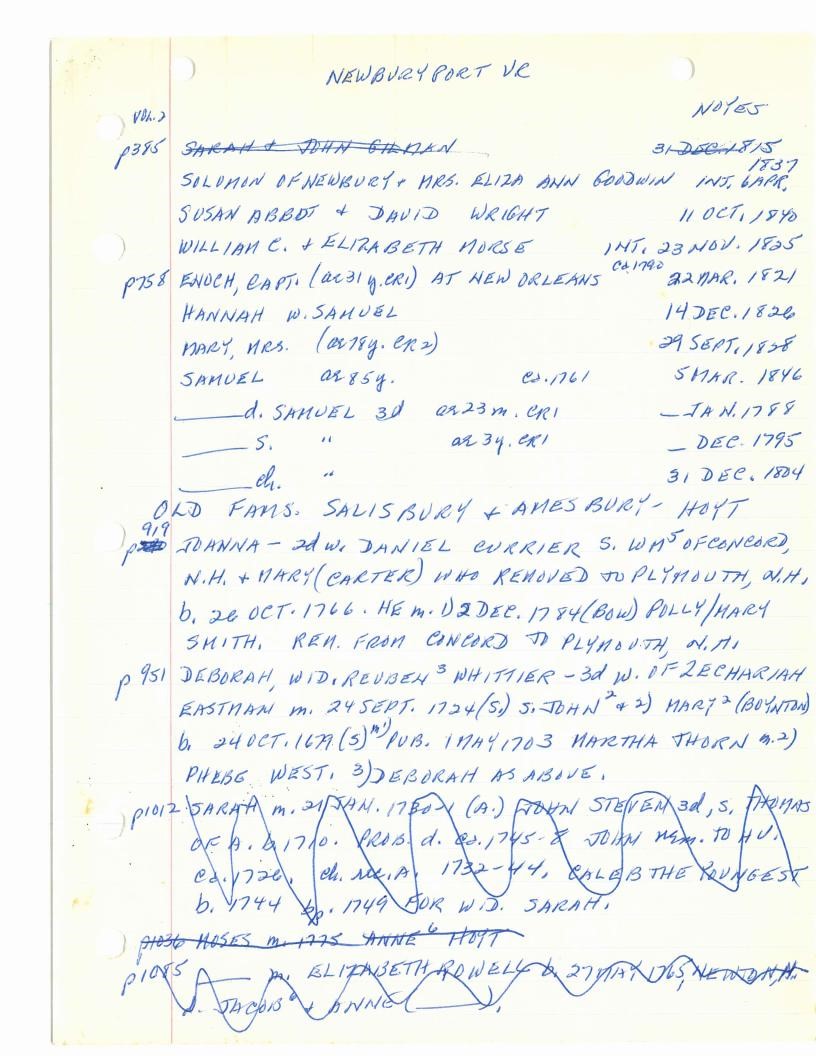 NEWBURYPORT VR
VOL. 2 NOYES
p385 SARAH & JOHN GILMAN 31 DEC. 1815
1837
SOLOMON OF NEWBURY & MRS. ELIZA ANN GOODWIN INT. 6 APR.
SUSAN ABBOT & DAVID WRIGHT 11 OCT. 1840
WILLIAM C. & ELIZABETH MORSE INT. 23 NOV. 1825
ca. 1790
p758 ENOCH, CAPT. (ae 31 y. CR1) AT NEW ORLEANS 22 MAR. 1821
HANNAH W. SAMUEL 14 DEC. 1826
MARY, MRS. (ae 78 y. CR2) 29 SEPT. 1828
SAMUEL ae 85 y. ca. 1761 5 MAR. 1846
____ d. SAMUEL 3d ae 23 m. CR1 _ JAN. 1788
____ s. " ae 3 y. CR1 _ DEC. 1795
____ ch. " 31 DEC. 1804
OLD FAMS. SALISBURY & AMESBURY - HOYT
919
p JOANNA - 2d w. DANIEL CURRIER S. WM⁵ OF CONCORD,
N.H. & MARY (CARTER) WHO REMOVED TO PLYMOUTH, N.H.
b. 26 OCT. 1766. HE m. 1) 2 DEC. 1784 (BOW) POLLY/MARY
SMITH. REM. FROM CONCORD TO PLYMOUTH, N.H.
p 951 DEBORAH, WID. REUBEN³ WHITTIER - 3d W. OF ZECHARIAH
EASTMAN m. 24 SEPT. 1724 (S.) S. JOHN² & 2) MARY² (BOYNTON)
b. 24 OCT. 1679 (S) m¹⁾ PUB. 1 MAY 1703 MARTHA THORN m. 2)
PHEBE WEST. 3) DEBORAH AS ABOVE.
p1012 SARAH m. 21 JAN. 1730-1 (A.) JOHN STEVEN 3d, S. THOMAS
OF A. b. 1710. PROB. d. ca. 1745-8 JOHN rem. TO HV.
ca. 1726. ch. rec. A. 1732-44, CALEB THE YOUNGEST
b. 1744 bp. 1749 FOR WID. SARAH.
p1036 MOSES m. 1775 ANNE⁶ HOYT
p1085 ____ m. ELIZABETH ROWELL b. 27 MAY 1765, NEWTON, N.
d. JACOB⁶ & ANNE (____).